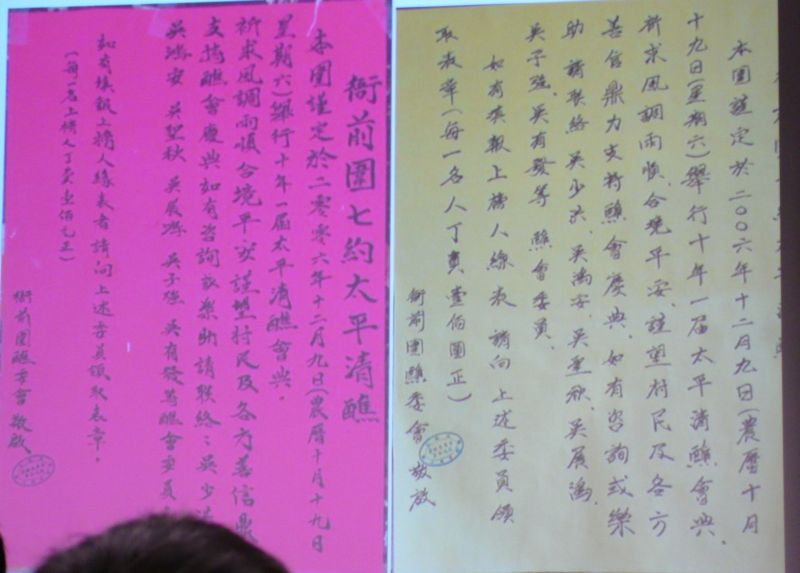 衙前圍七約太平清醮
本圍謹定於二零零六年十二月九日(農曆十月十九日
星期六)舉行十年一屆太平清醮會典。
祈求風調雨順合境平安謹望村民及各方善信鼎
支持醮會慶典如有咨詢或樂助請聯絡：吳少洪
吳鴻安 吳聖秋 吳展鴻 吳子強 吳有發等醮會委員
如有填報上榜人緣表者請向上述委員領取表章。
(每一名上榜人丁費壹佰元正)
衙前圍醮委會 敬啟
本圍謹定於二〇〇六年十二月九日(農曆十月
十九日(星期六)舉行十年一屆太平清醮會典.
祈求風調雨順、合境平安、謹望村民及各方
善信鼎力支持醮會慶典、如有咨詢或樂
助請聯絡吳少洪、吳鴻安、吳聖秋、吳展鴻、
吳子強、吳有發等醮會委員.
如有填報上榜人緣表請向上述委員領
取表章(每一名人丁費壹佰圓正)
衙前圍醮委會 敬啟